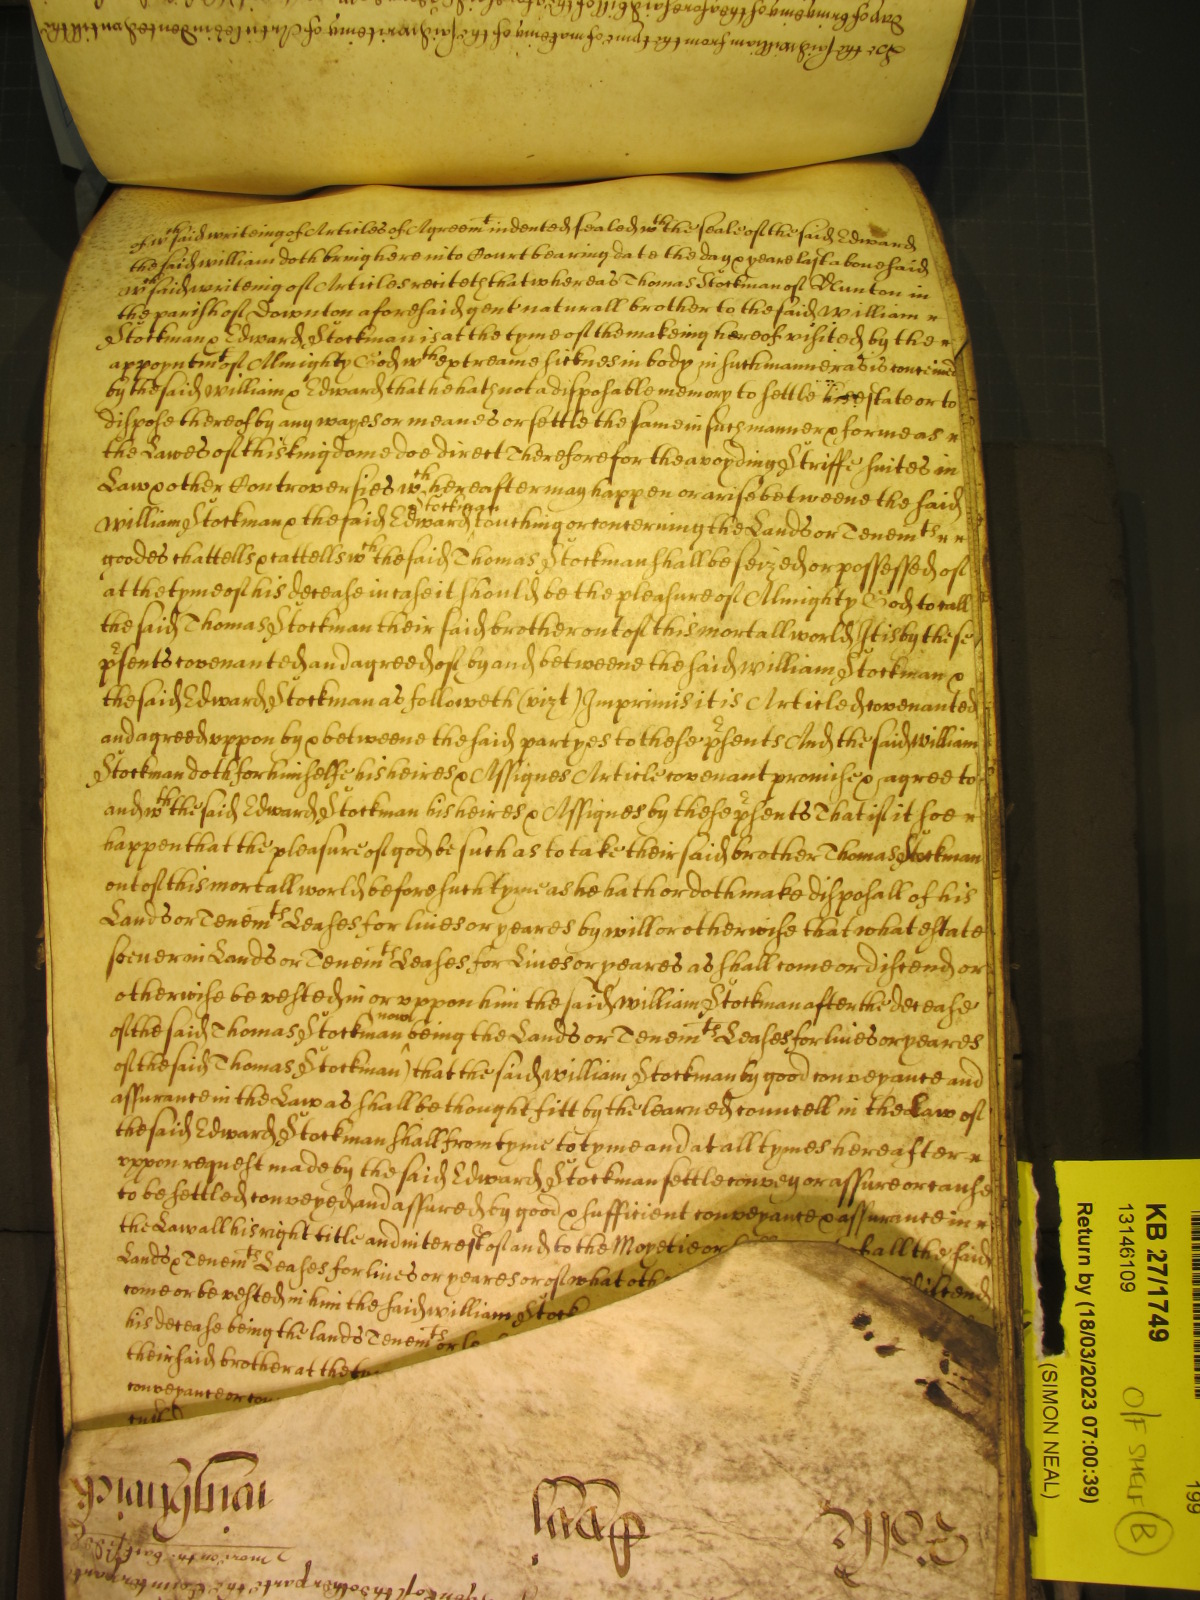 of wch said writeing of Articles of Agreemt indented sealed wth the seale of the said Edward
the said William doth bring here into Court bearing date the day & yeare last abovesaid
wch said writeing of Articles reciteth that whereas Thomas Stockman of Bunton in
the parish of Downton aforesaid gent naturall brother to the said William
Stockman & Edward Stockman is at the tyme of the makeing hereof visited by the
appoyntmt of Almighty God wth extreame sicknes in body in such manner as is conceived
by the said William & Edward that he hath not a disposable memory to settle his estate or to
dispose thereof by any wayes or meanes or settle the same in such manner & forme as
the Lawes of this kingdome doe direct Therefore for the avoyding Striffe suites in
Law & other Controversies wch hereafter may happen or arise betweene the said
William Stockman & the said Edward Stockman touching or concerning the Lands or Tenemts
goodes chattells & cattells wch the said Thomas Stockman shall be seized or possessed of
at the tyme of his decease in case it should be the pleasure of Almighty God to call
the said Thomas Stockman their said brother out of this mortall world It is by these
psents covenanted and agreed of by and betweene the said William Stockman &
the said Edward Stockman as followeth (vizt) Imprimis it is Articled covenanted
and agreed uppon by & betweene the said partyes to these psents And the said William
Stockman doth for himselfe his heires & Assignes Article covenant promise & agree to
and wth the said Edward Stockman his heires & Assignes by these psents That if it soe
happen that the pleasure of god be such as to take their said brother Thomas Stockman
out of this mortall world before such tyme as he hath or doth make disposall of his
Lands or Tenemts Leases for lives or yeares by will or otherwise that what estate
soever in Lands or Tenemts Leases for Lives or yeares as shall come or discend or
otherwise be vested in or uppon him the said William Stockman after the decease
of the said Thomas Stockman being now the Lands or Tenemts Leases for lives or yeares
of the said Thomas Stockman) that the said William Stockman by good conveyance and
assurance in the Law as shall be thought fitt by the learned councell in the Law of
the said Edward Stockman shall from tyme to tyme and at all tymes hereafter
uppon request made by the said Edward Stockman settle convey or assure or cause
to be settled conveyed and assured by good & sufficient conveyance & assurance in
the Law all his right title and interest of and to the Moyetie or all the said
Lands & Tenemts Leases for lives or yeares or of what discend
come or be vested in him the said William Stock
his decease being the lands Tenemts or
their said brother at the
conveyance or
KB 27/1749
13146109
Return by (18/03/2023 07:00:39)
(SIMON NEAL)
O/F SHELF B
199